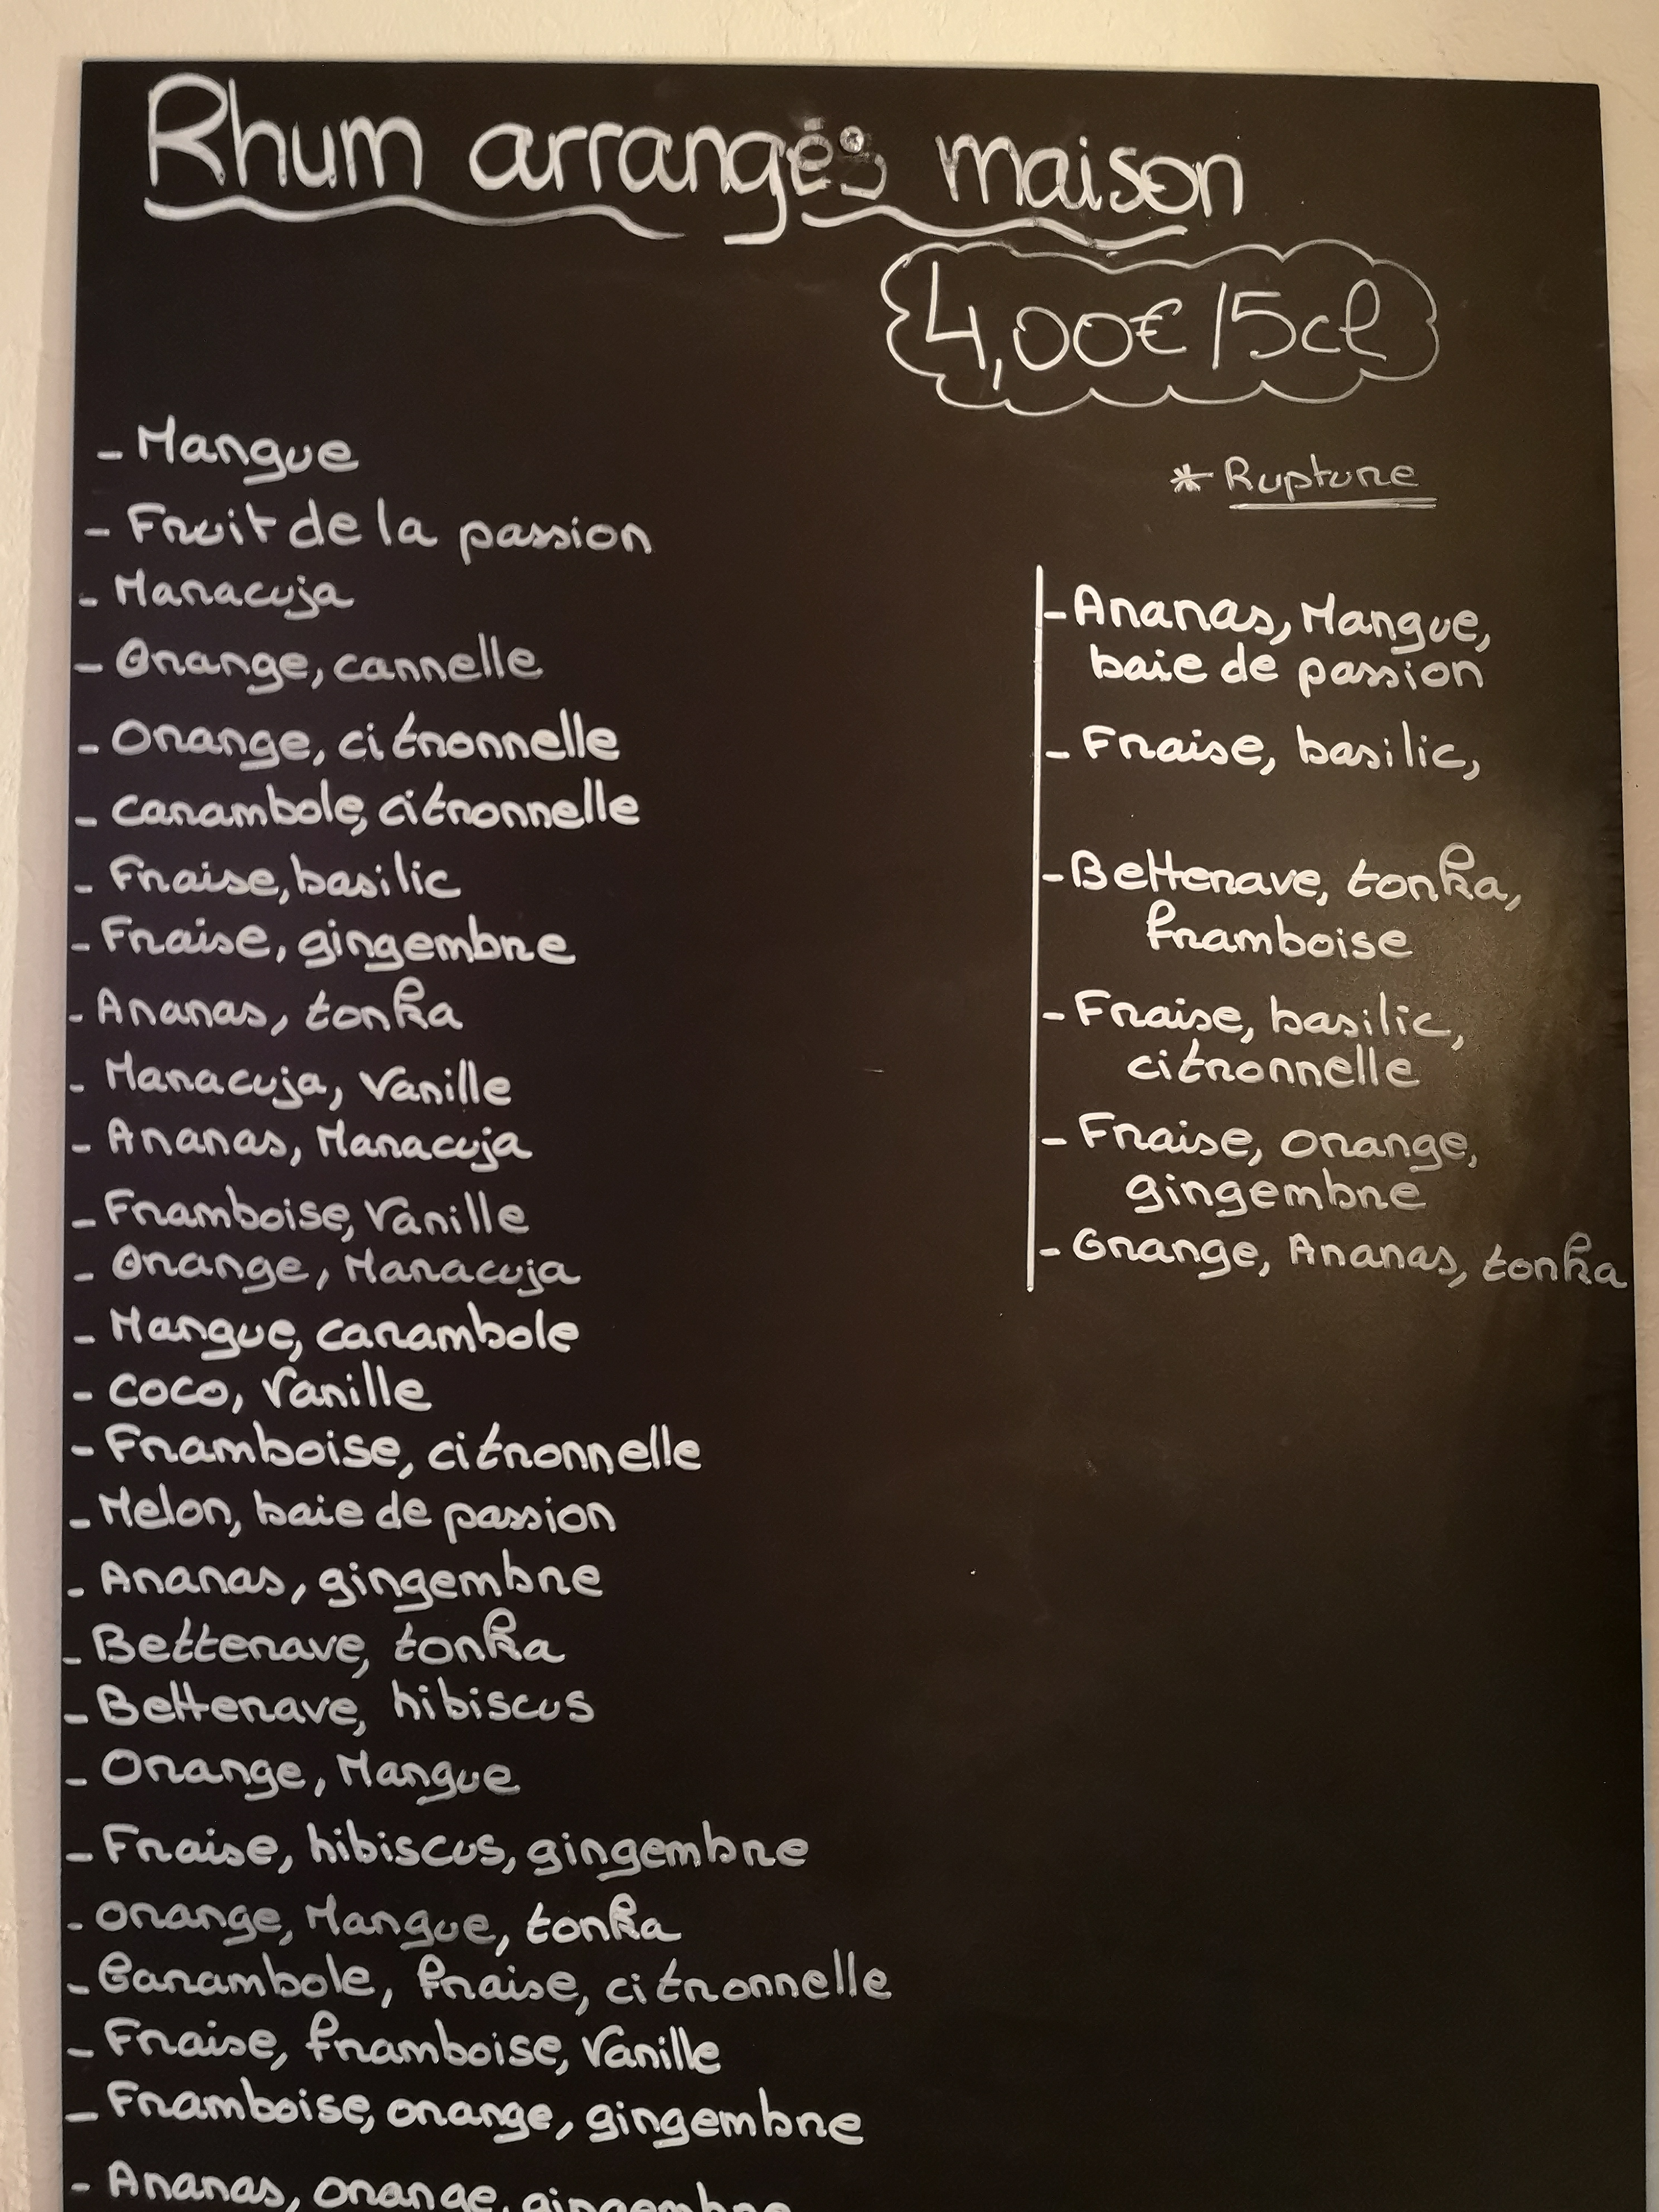 Rhum arrangés maison
4,00€/5cl
- Mangue
- Fruit de la passion
- Maracuja
- Orange, cannelle
- Orange, citronnelle
- carambole, citronnelle
- Fraise, basilic
- Fraise, gingembre
- Ananas, tonka
- Maracuja, Vanille
- Ananas, Maracuja
- Framboise, Vanille
- Orange, Maracuja
- Mangue, carambole
- coco, Vanille
- Framboise, citronnelle
- Melon, baie de passion
- Ananas, gingembre
- Betterave, tonka
- Betterave, hibiscus
- Orange, Mangue
- Fraise, hibiscus, gingembre
- orange, Mangue, tonka
- Carambole, fraise, citronnelle
- Fraise, framboise, Vanille
- Framboise, orange, gingembre
- Ananas, orange, gingembre
* Rupture
- Ananas, Mangue,
baie de passion
- Fraise, basilic,
- Betterave, tonka,
framboise
- Fraise, basilic,
citronnelle
- Fraise, orange,
gingembre
- Orange, Ananas, tonka